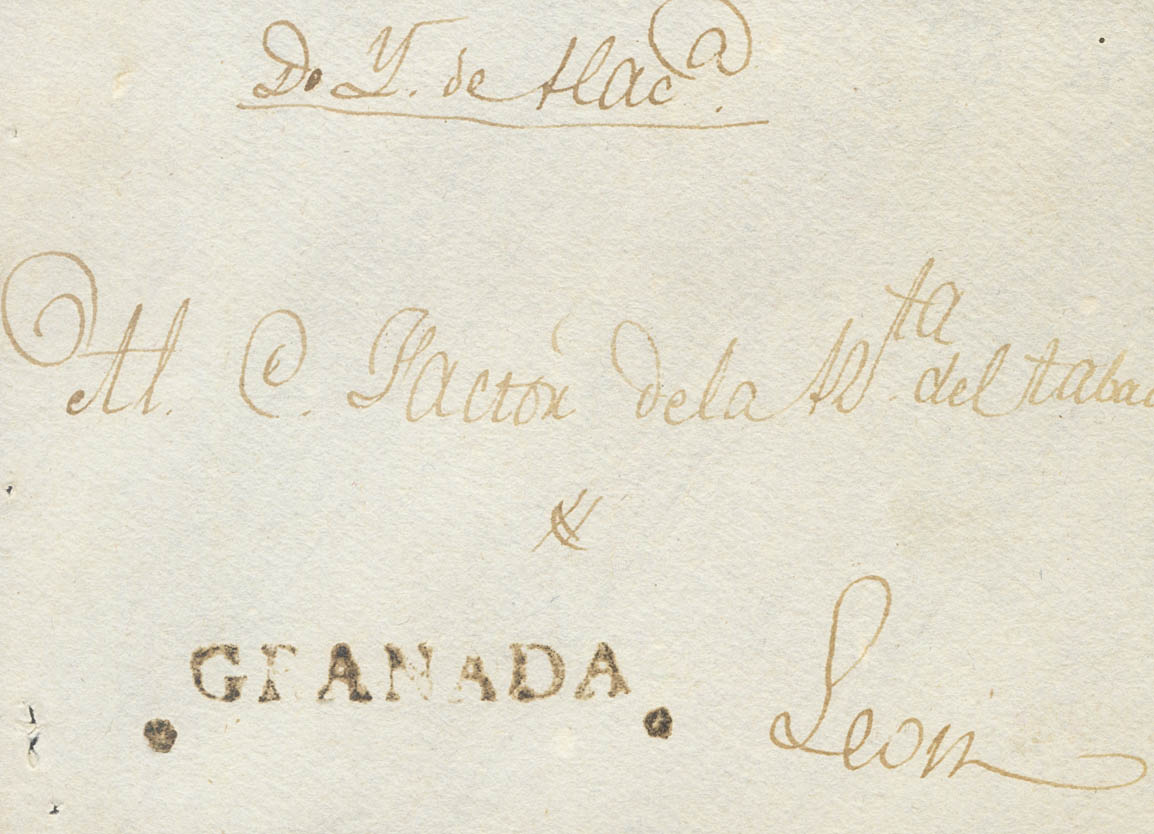 Do Y. de Hac.a
Al. C. Factor de la R.ta del tabac
GRANADA
Leon